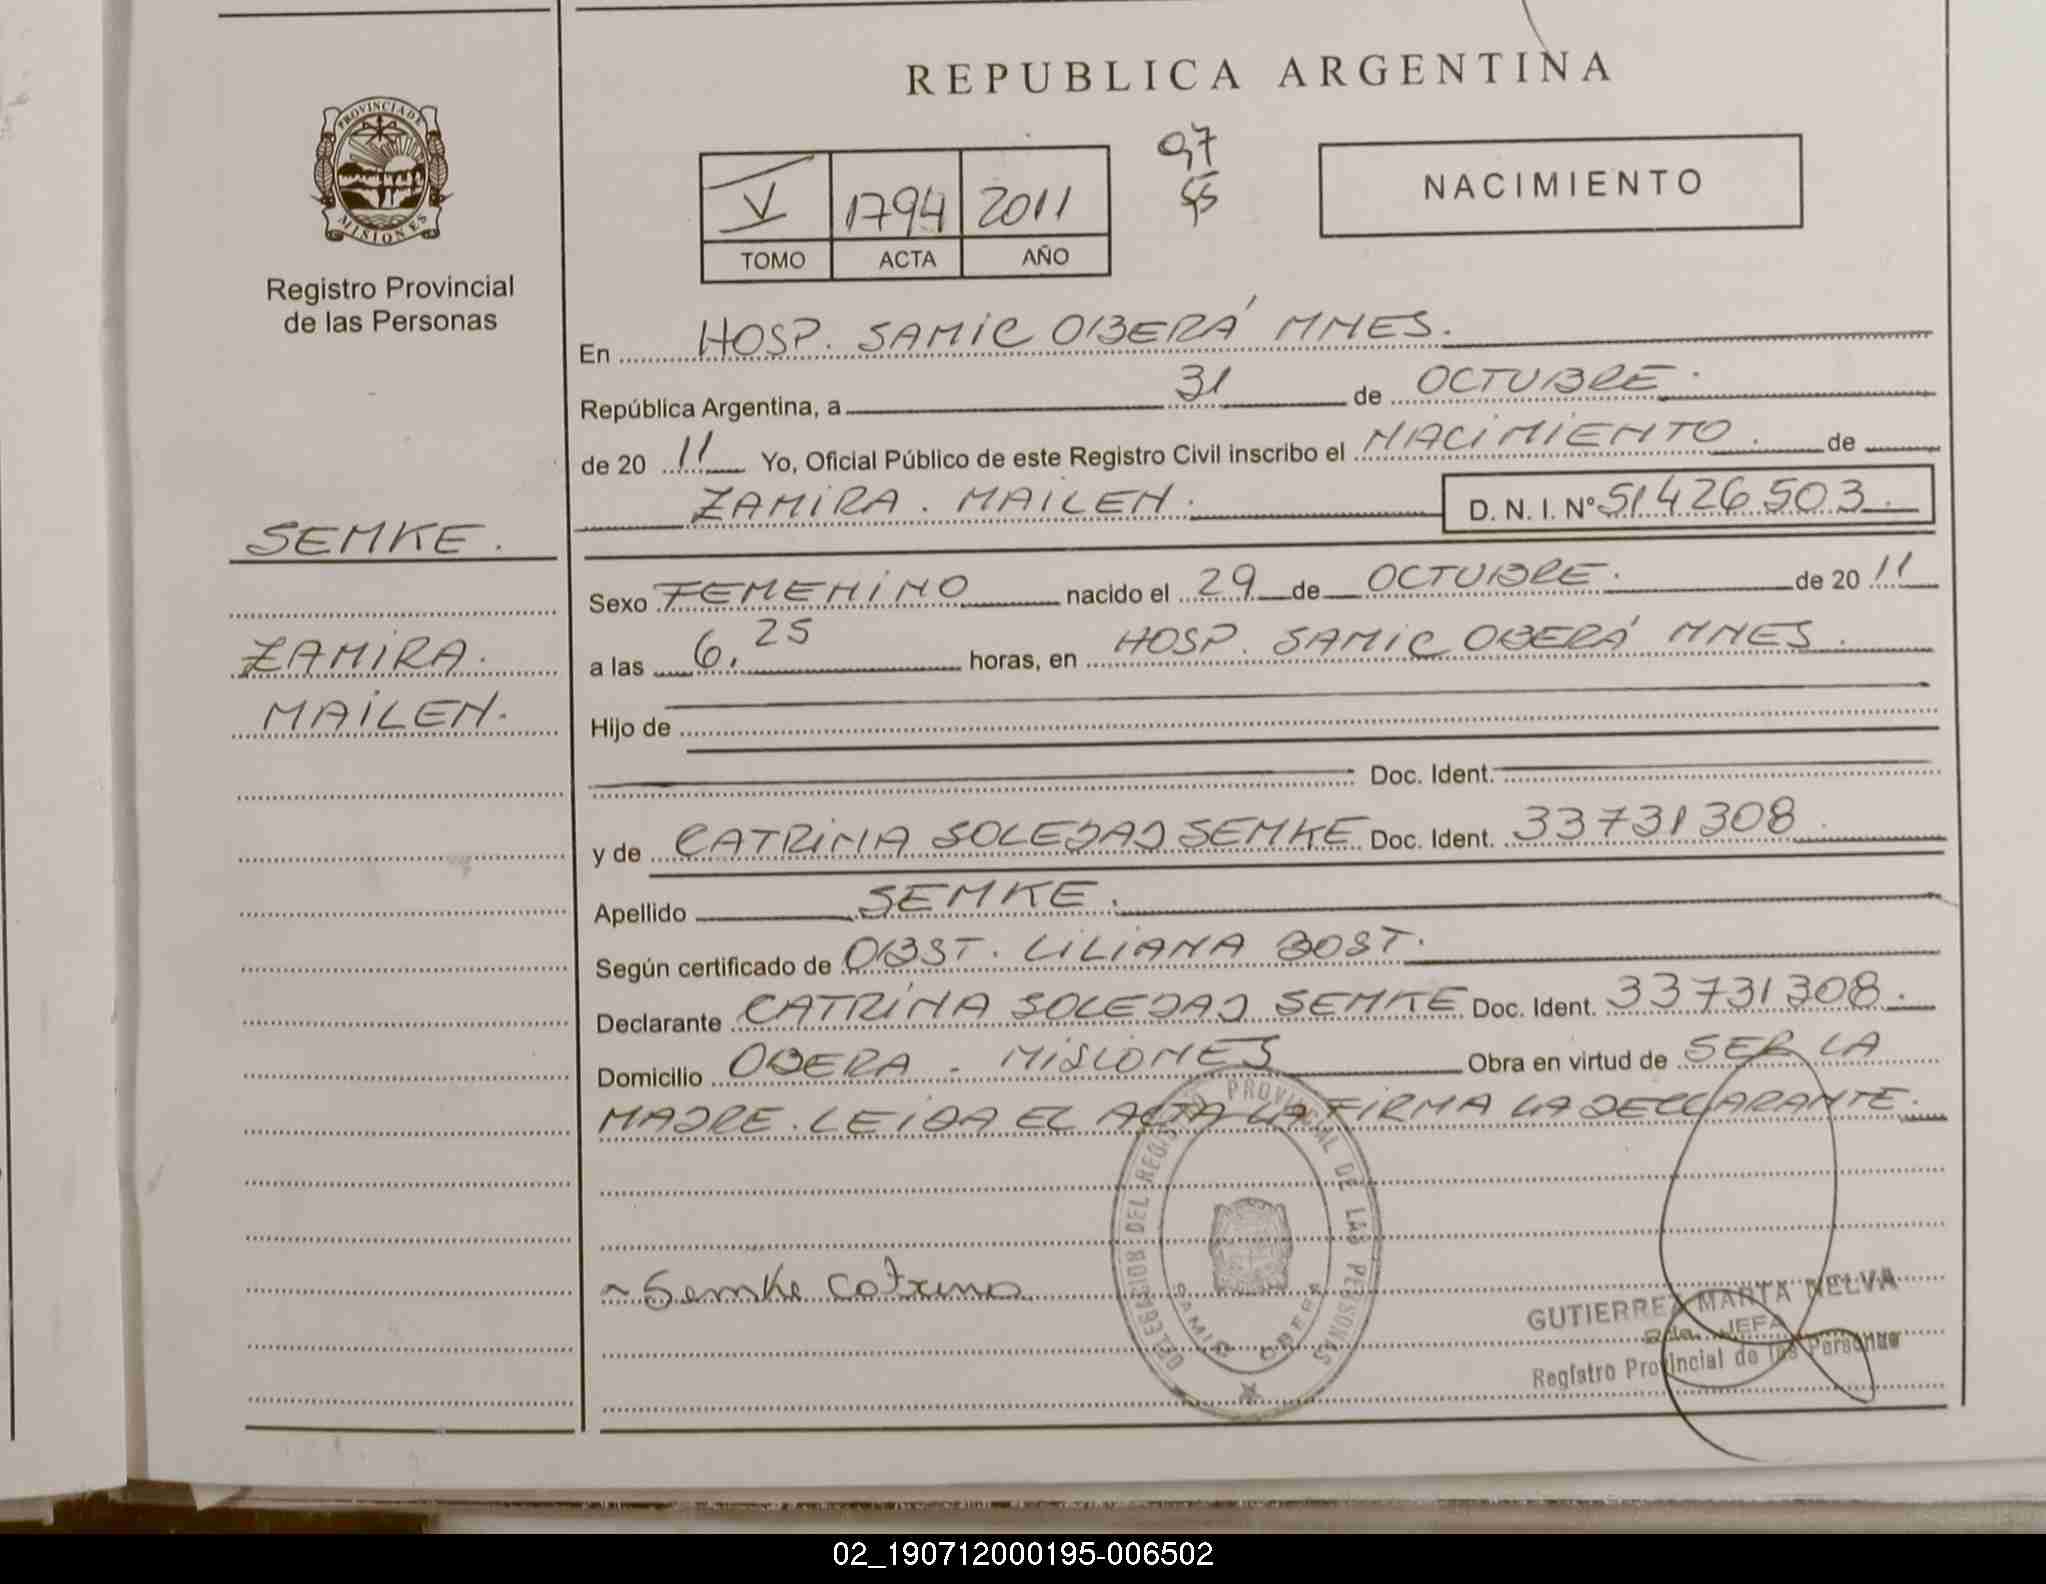 REPUBLICA ARGENTINA
PROVINCIA DE MISIONES
Registro Provincial
de las Personas
V 1794 2011
TOMO ACTA AÑO
97
55
NACIMIENTO
En HOSP. SAMIC OBERÁ MNES.
República Argentina, a 31 de OCTUBRE.
de 20 11 Yo, Oficial Público de este Registro Civil inscribo el NACIMIENTO. de
ZAMIRA. MAILEN. D. N. I. Nº 51.426.503.
SEMKE.
ZAMIRA.
MAILEN.
Sexo FEMENINO nacido el 29 de OCTUBRE. de 20 11
a las 6,25 horas, en HOSP. SAMIC OBERÁ MNES.
Hijo de
Doc. Ident.
y de CATRINA SOLEDAD SEMKE Doc. Ident. 33731308.
Apellido SEMKE.
Según certificado de OBST. LILIANA BOST.
Declarante CATRINA SOLEDAD SEMKE Doc. Ident. 33731308.
Domicilio OBERA - MISIONES Obra en virtud de SER LA
MADRE. LEIDA EL ACTA LA FIRMA LA DECLARANTE.
DELEGACION DEL REGISTRO PROVINCIAL DE LAS PERSONAS
SAMIC OBERA
Semke Catrina
GUTIERREZ MARTA NELVA
2da. JEFA
Registro Provincial de las Personas
02_190712000195-006502